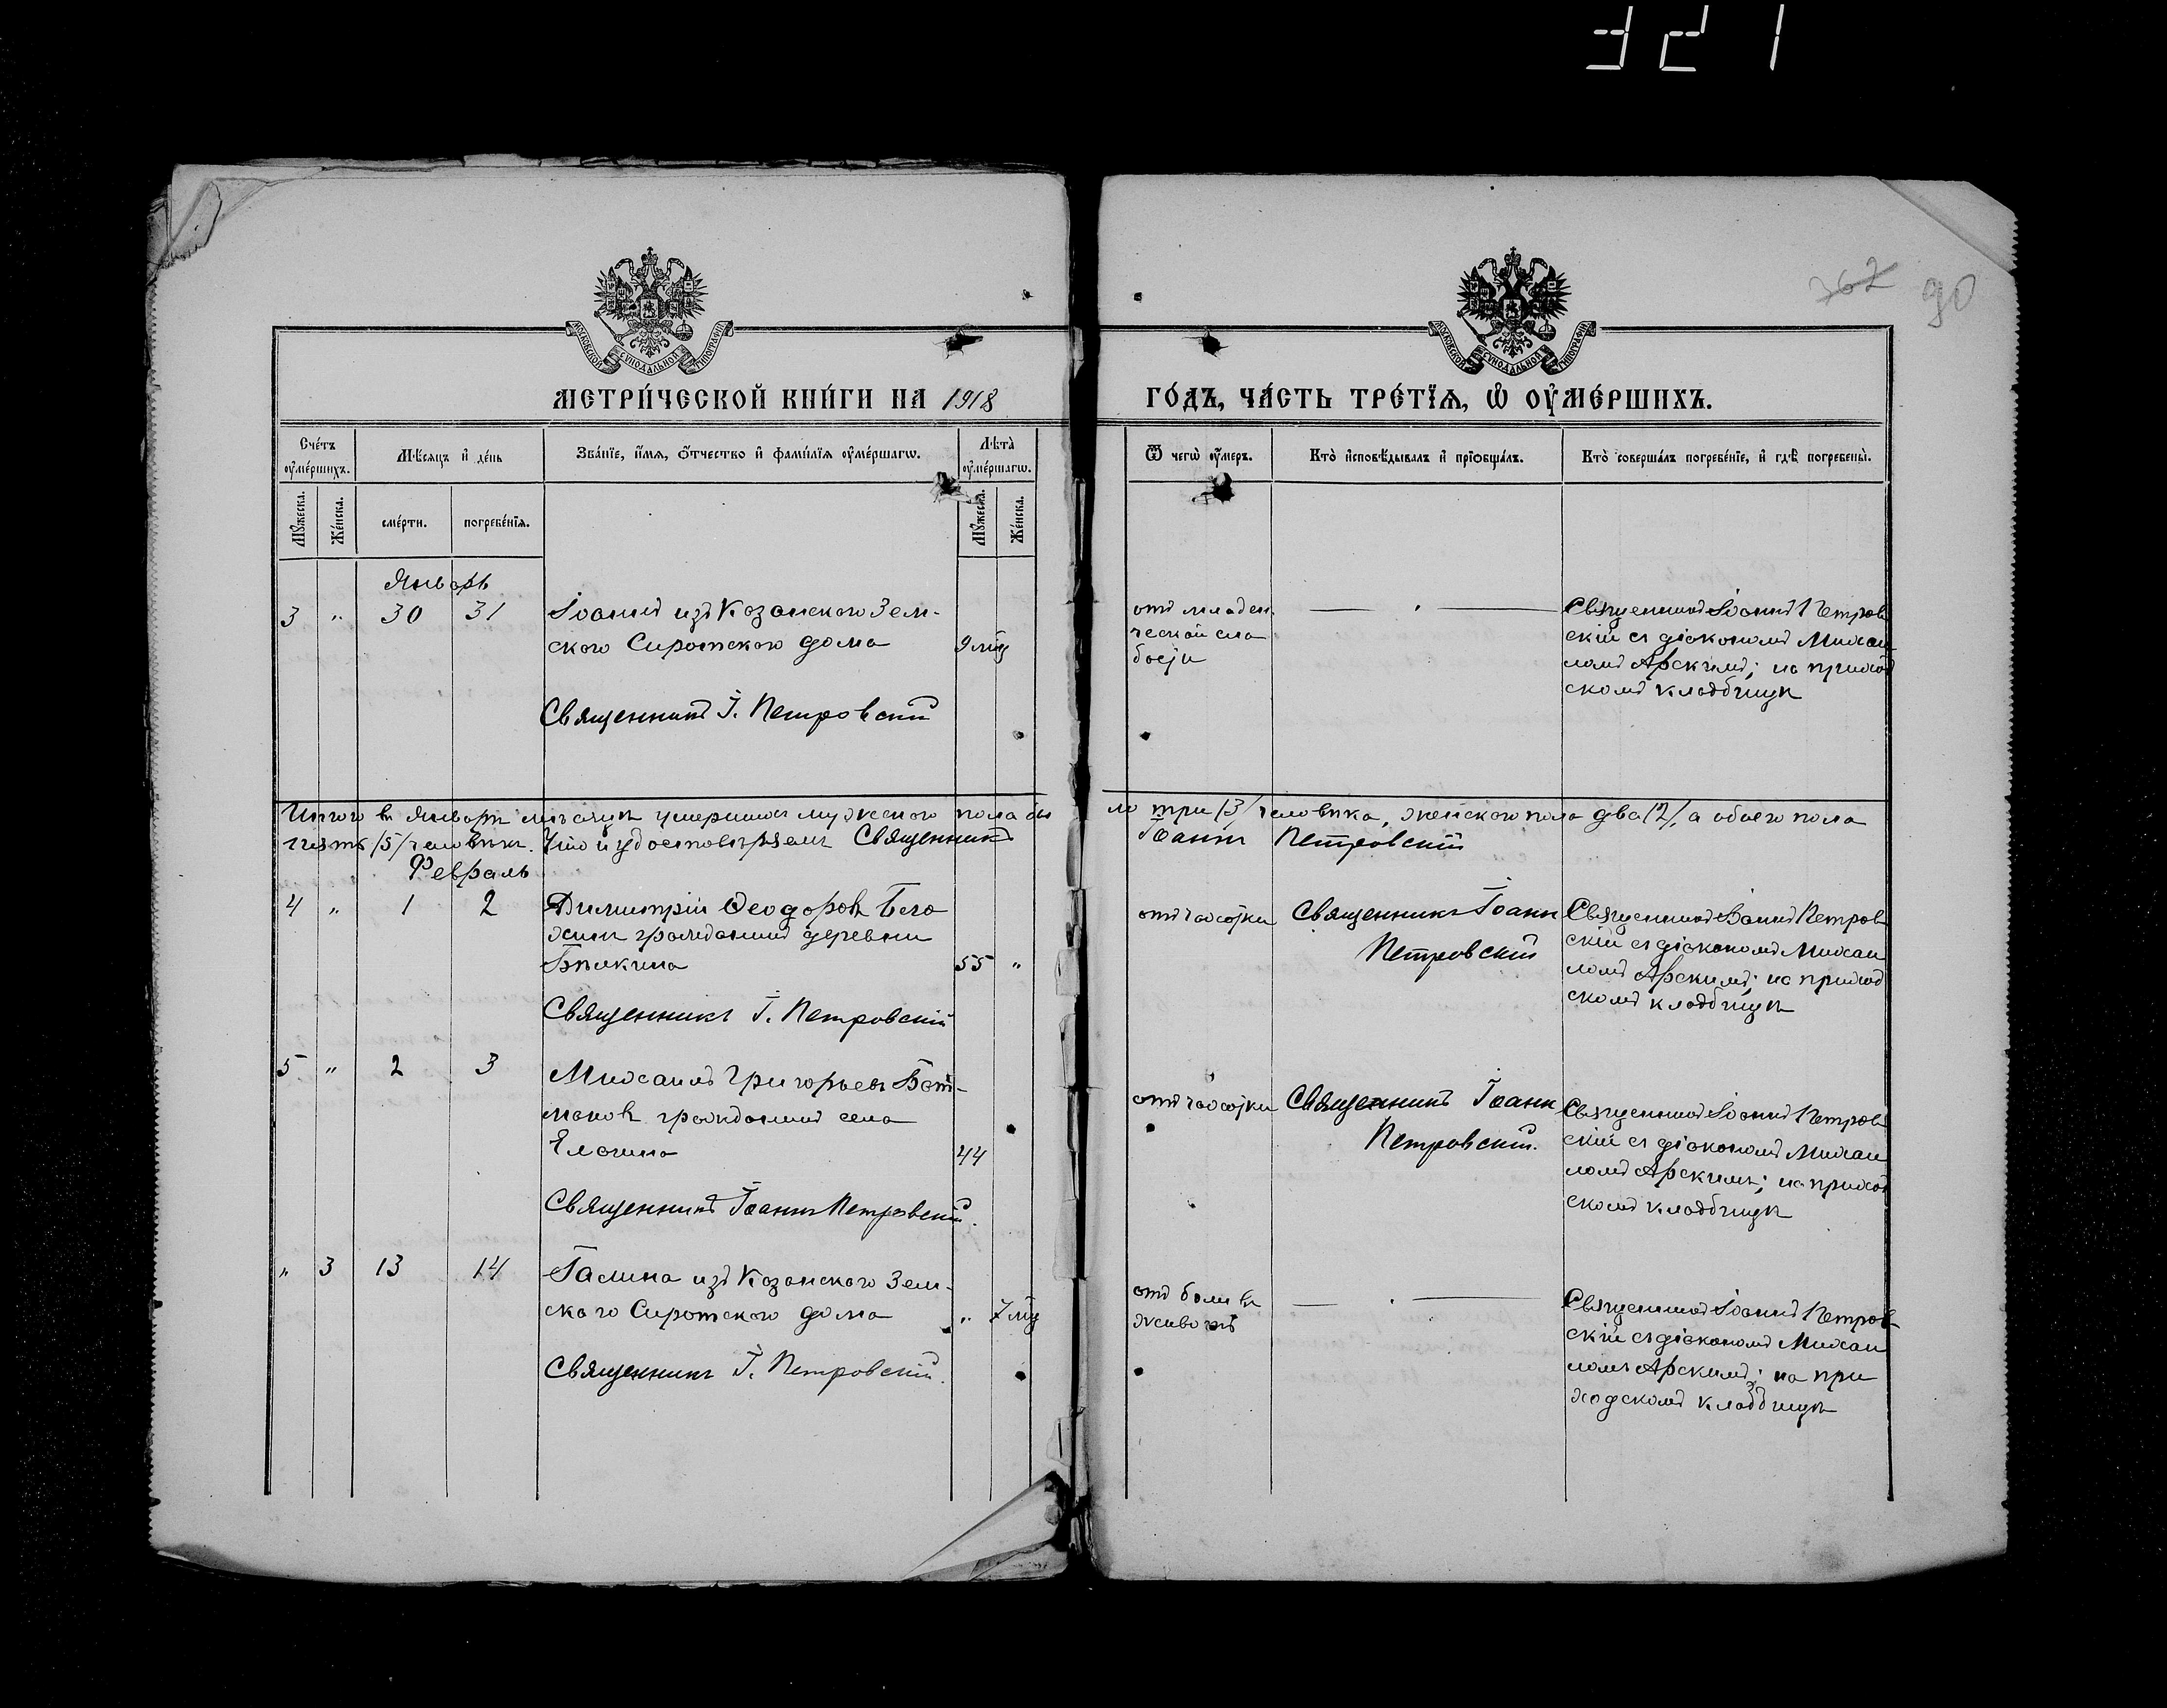 321
362 90
МОСКОВСКОЙ СУНОДАЛЬНОЙ ТИПОГРАФІИ
МОСКОВСКОЙ СУНОДАЛЬНОЙ ТИПОГРАФІИ
МЕТРИ́ЧЕСКОЙ КНИ́ГИ НА 1918 ГО́ДЪ, ЧА́СТЬ ТРЕ́ТЇѦ, Ѡ҆ ОУ҆МЕ́РШИХЪ.
Сче́тъ оу҆ме́ршихъ.
Мѣ́сяцъ и҆ де́нь
Зва́нїе, и҆́мѧ, ѻ҆́тчество и҆ фами́лїѧ оу҆ме́ршагѡ.
Лѣ́та оу҆ме́ршагѡ.
Ѿ чегѡ̀ оу҆́меръ.
Кто̀ и҆сповѣ́дывалъ и҆ прїѡбща́лъ.
Кто̀ соверша́лъ погребе́нїе, и҆ гдѣ̀ погребены̀.
Мꙋ́жеска.
Же́нска.
сме́рти.
погребе́нїѧ.
Мꙋ́жеска.
Же́нска.
Январь
3 " 30 31 Іоаннъ изъ Казанского Зем-
ского Сиротского дома 9 мц
Священникъ І. Петровскій
отъ младен
ческой сла
бости
Священникъ Іоаннъ Петров
скій съ діакономъ Михаи
ломъ Арскимъ; на приход
скомъ кладбищѣ
Итого въ Январѣ мѣсяцѣ умершихъ мужеского пола бы
ло три /3/ человѣка, женского пола два /2/, а обоего пола
пять /5/ человѣкъ. Что и удостовѣряемъ Священникъ
Іоаннъ Петровскій
Февраль
4 " 1 2 Димитрій Ѳеодоровъ
гражданинъ деревни
Бѣлкина 55 "
Священникъ І. Петровскій
отъ чахотки
Священникъ Іоаннъ
Петровскій
Священникъ Іоаннъ Петров
скій съ діакономъ Михаи
ломъ Арскимъ; на приход
скомъ кладбищѣ
5 " 2 3 Михаилъ Григорьевъ Бат-
маковъ гражданинъ села
44
Священникъ Іоаннъ Петровскій.
отъ чахотки
Священникъ Іоаннъ
Петровскій.
Священникъ Іоаннъ Петров
скій съ діакономъ Михаи
ломъ Арскимъ; на приход
скомъ кладбищѣ
" 3 13 14 Галина изъ Казанского Зем-
ского Сиротского дома " 7 мц
Священникъ І. Петровскій.
отъ боли въ
животѣ
Священникъ Іоаннъ Петров
скій съ діакономъ Михаи
ломъ Арскимъ; на при
ходскомъ кладбищѣ